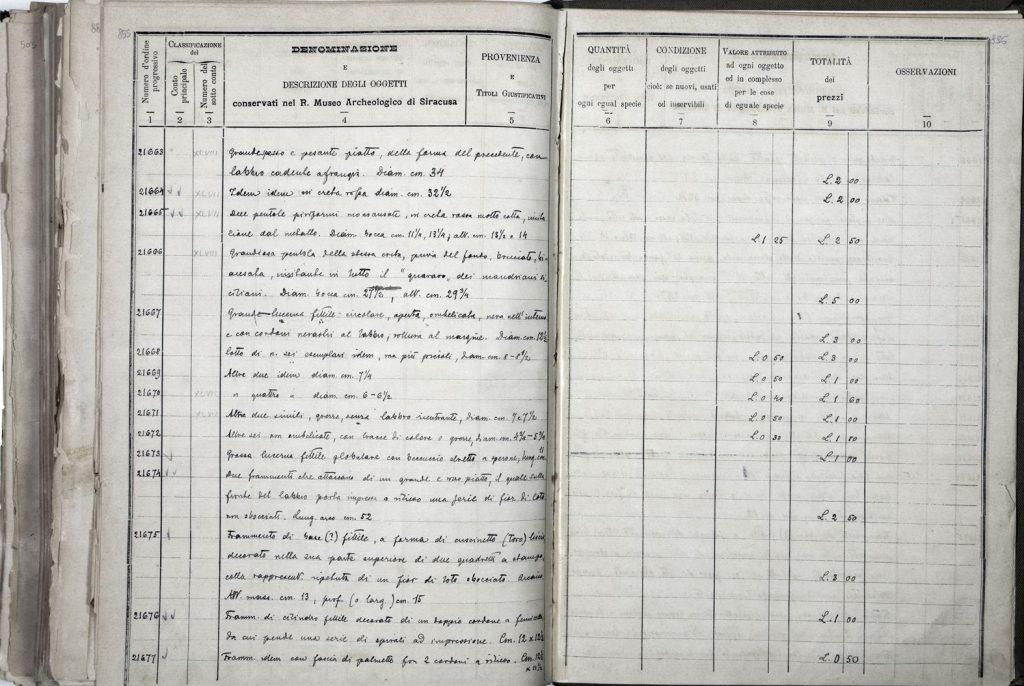 855
Numero d'ordine progressivo
CLASSIFICAZIONE del
Conto principale
Numero del sotto conto
DENOMINAZIONE
E
DESCRIZIONE DEGLI OGGETTI
conservati nel R. Museo Archeologico di Siracusa
PROVENIENZA
E
TITOLI GIUSTIFICATIVI
QUANTITÀ
degli oggetti
per
ogni egual specie
CONDIZIONE
degli oggetti
cioè: se nuovi, usati
od inservibili
VALORE ATTRIBUTO
ad ogni oggetto
ed in complesso
per le cose
di eguale specie
TOTALITÀ
dei
prezzi
OSSERVAZIONI
1 2 3 4 5 6 7 8 9 10
21663 XLVIII Grande e pesante piatto, della forma del precedente, con
labbro cadente a frangia. Diam. cm. 34 L. 2 00
21664 XLVIII Idem idem in creta rossa diam. cm. 32½ L. 2 00
21665 XLVIII Due pentole piriformi monoansate, in creta rossa molto cotta,
Diam. bocca cm. 11½, 13¼; alt. cm. 13½ e 14 L. 1 25 L. 2 50
21666 XLVIII Grandiosa pentola della stessa creta, priva del fondo, bruciata, bi-
ansata, in tutto il " quararo " dei mandriani si-
ciliani. Diam. bocca cm. 27½, alt. cm. 29¾ L. 5 00
21667 Grande lucerna fittile circolare, aperta, ombelicata, nera nell'interno
e con cordoni nerastri al labbro, rottura al margine. Diam. cm. 12½ L. 3 00
21668 lotto di n. sei esemplari idem, ma più piccoli, diam. cm. 8-8½ L. 0 50 L. 3 00
21669 Altre due idem diam. cm. 7¼ L. 0 50 L. 1 00
21670 XLVIII " quattro " diam. cm. 6-6½ L. 0 40 L. 1 60
21671 XLVIII Altre due simili, grosse, senza labbro rientrante, diam. cm. 7 e 7½ L. 0 50 L. 1 00
21672 Altre sei non ombelicate, con tracce di colore o grosse, diam. cm. L. 0 30 L. 1 80
21673 Grossa lucerna fittile globulare con beccuccio stretto a sperone, lung. cm. 11 L. 1 00
21674 Due frammenti che attaccano di un grande e raro piatto, il quale sulla
fronte del labbro porta impressa a rilievo una serie di fior di loto
non sbocciati. Lung. arco cm. 52 L. 2 50
21675 Frammento di base (?) fittile, a forma di cuscinetto (toro)
decorato nella sua parte superiore di due quadretti a stampo,
colla rappresent. ripetuta di un fior di loto sbocciato. Arcaico
Alt. mass. cm. 13, prof. (o larg.) cm. 15 L. 3 00
21676 Framm. di cilindro fittile decorato di un doppio cordone a
da cui pende una serie di spirali ad impressione. Cm. 12 x 12½ L. 1 00
21677 Framm. idem con fascia di palmette fra 2 cordoni a rilievo. Cm. 12½ L. 0 50